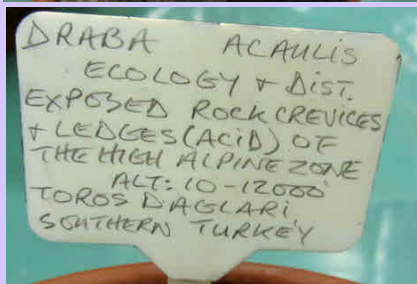 DRABA ACAULIS
ECOLOGY + DIST.
EXPOSED ROCK CREVICES
+ LEDGES (ACID) OF
THE HIGH ALPINE ZONE
ALT: 10-12000'
TOROS DAGLARI
SOUTHERN TURKEY